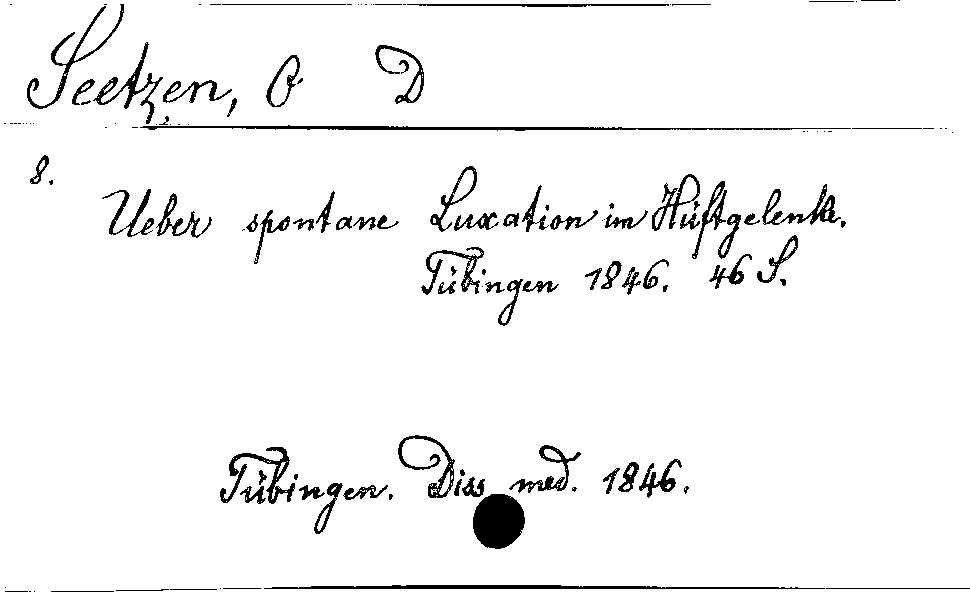 Seetzen, O D
8.
Ueber spontane Luxation im Hüftgelenke.
Tübingen 1846. 46 S.
Tübingen. Diss med. 1846.